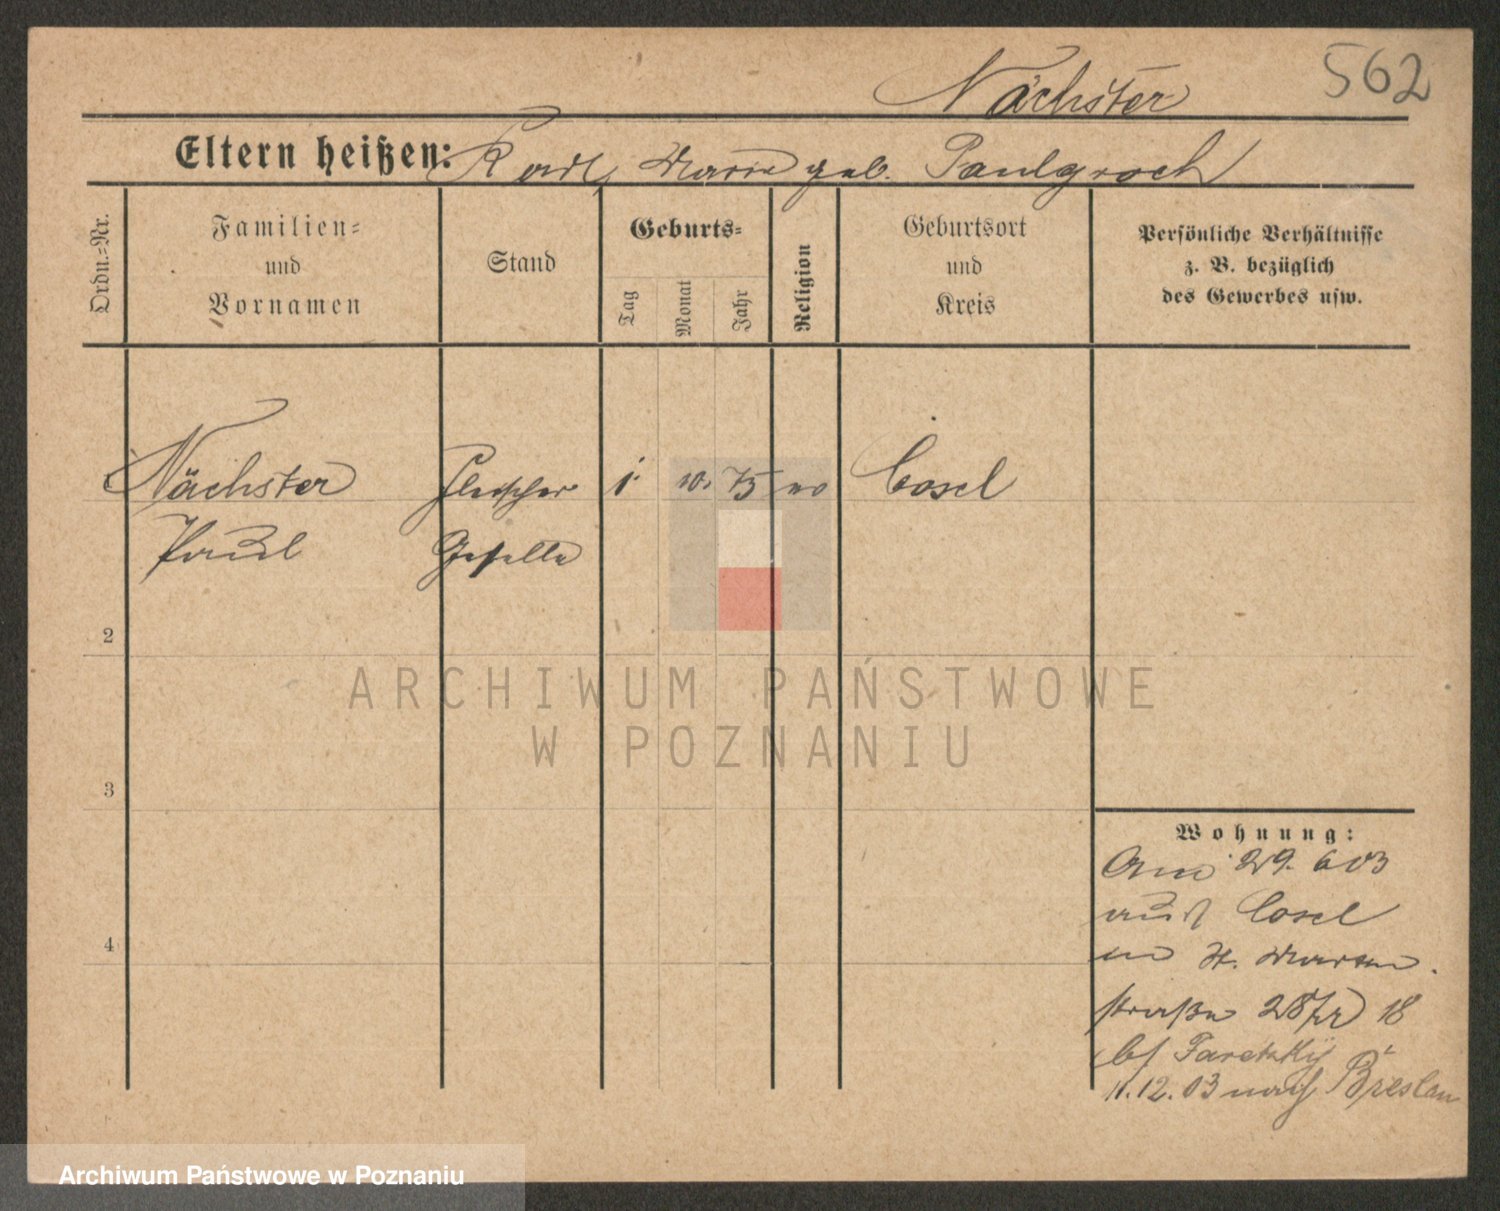 Nächster 562
Eltern heißen: Karl, Marie geb. Paulgroch
Ordn.-Nr.
Familien-
und
Vornamen
Stand
Geburts-
Tag
Monat
Jahr
Religion
Geburtsort
und
Kreis
Persönliche Verhältnisse
z. B. bezüglich
des Gewerbes usw.
Nächster Fleischer 1. 10. 75 Cosel
Paul Geselle
2
3
4
Wohnung:
Am 29. 6 03
aus Cosel
in St. Martin
straße 28 18
bei Taretzky
11.12.03 nach Breslau
ARCHIWUM PAŃSTWOWE
W POZNANIU
Archiwum Państwowe w Poznaniu